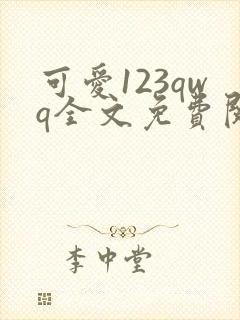 可愛123qw
q全文免費閱
李中堂